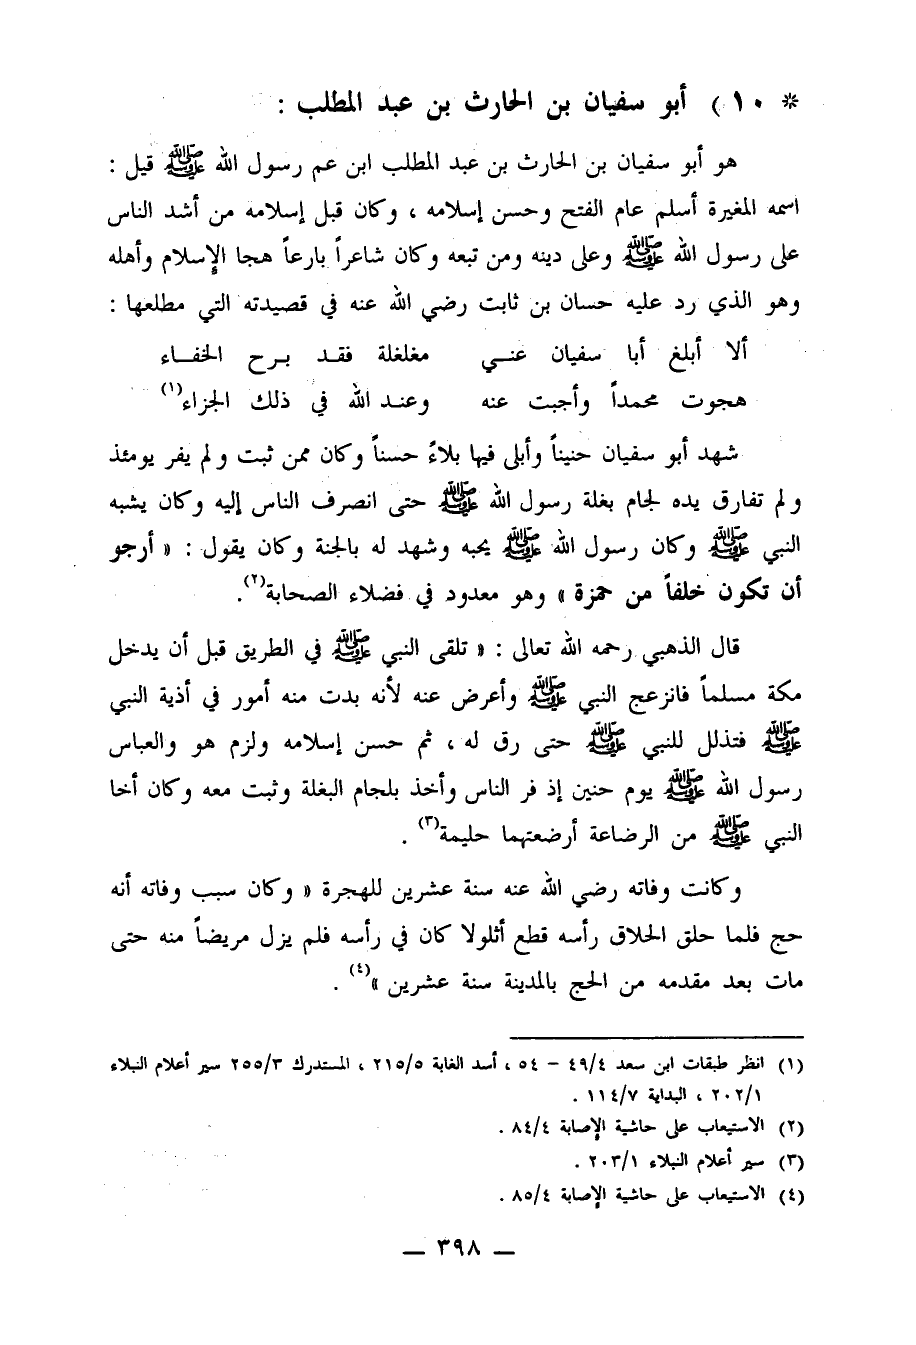 * ١٠) أبو سفيان بن الحارث بن عبد المطلب :
هو أبو سفيان بن الحارث بن عبد المطلب ابن عم رسول الله ﷺ قيل :
اسمه المغيرة أسلم عام الفتح وحسن إسلامه ، وكان قبل إسلامه من أشد الناس
على رسول الله ﷺ وعلى دينه ومن تبعه وكان شاعراً بارعاً هجا الإسلام وأهله
وهو الذي رد عليه حسان بن ثابت رضي الله عنه في قصيدته التي مطلعها :
ألا أبلغ أبا سفيان عنـي مغلغلة فقـد بـرح الخفـاء
هجوت محمداً وأجبت عنه وعنـد الله في ذلك الجزاء(١)
شهد أبو سفيان حنيناً وأبلى فيها بلاءً حسناً وكان ممن ثبت ولم يفر يومئذ
ولم تفارق يده لجام بغلة رسول الله ﷺ حتى انصرف الناس إليه وكان يشبه
النبي ﷺ وكان رسول الله ﷺ يحبه وشهد له بالجنة وكان يقول : « أرجو
أن تكون خلفاً من حمزة » وهو معدود في فضلاء الصحابة(٢).
قال الذهبي رحمه الله تعالى : « تلقى النبي ﷺ في الطريق قبل أن يدخل
مكة مسلماً فانزعج النبي ﷺ وأعرض عنه لأنه بدت منه أمور في أذية النبي
ﷺ فتذلل للنبي ﷺ حتى رق له ، ثم حسن إسلامه ولزم هو والعباس
رسول الله ﷺ يوم حنين إذ فر الناس وأخذ بلجام البغلة وثبت معه وكان أخا
النبي ﷺ من الرضاعة أرضعتهما حليمة(٣) .
وكانت وفاته رضي الله عنه سنة عشرين للهجرة « وكان سبب وفاته أنه
حج فلما حلق الحلاق رأسه قطع أثلولا كان في رأسه فلم يزل مريضاً منه حتى
مات بعد مقدمه من الحج بالمدينة سنة عشرين »(٤) .
(١) انظر طبقات ابن سعد ٤٩/٤ – ٥٤ ، أسد الغابة ٢١٥/٥ ، المستدرك ٢٥٥/٣ سير أعلام النبلاء
٢٠٢/١ ، البداية ١١٤/٧ .
(٢) الاستيعاب على حاشية الإصابة ٨٤/٤ .
(٣) سير أعلام النبلاء ٢٠٣/١ .
(٤) الاستيعاب على حاشية الإصابة ٨٥/٤ .
— ٣٩٨ —